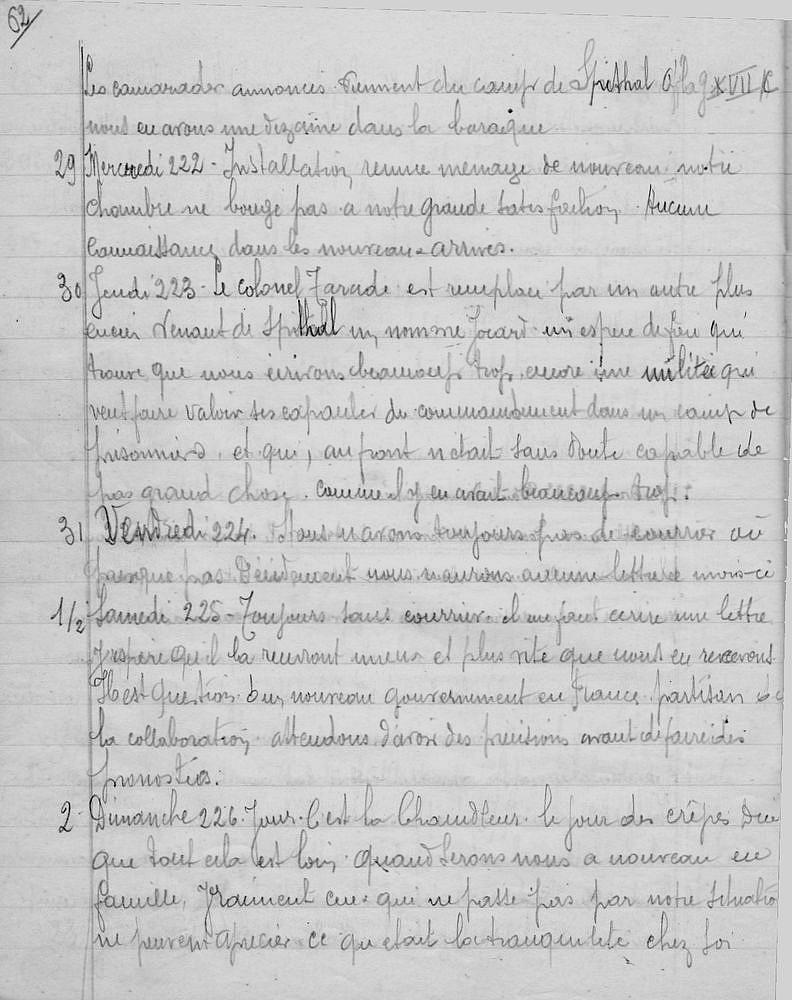 62
Les camarades annoncés viennent du camp de Spithal Oflag XVII C
nous en avons une dizaine dans la baraque
29 Mercredi 222 - Installation, remue menage de nouveau notre
chambre ne bouge pas a notre grande satisfaction. Aucune
connaissance dans les nouveaux arrives.
30 Jeudi 223 - Le colonel Tarade est remplace par un autre plus
ancien venant de Spithal un nomme Jocard un espece de fou qui
trouve que nous ecrivons beaucoup trop. encore une qui
veut faire valoir ses capacites de commandement dans un camp de
prisonniers, et qui, au front n'etait sans doute capable de
pas grand chose. comme il y en avait beaucoup trop.
31 Vendredi 224. Nous n'avons toujours pas de courrier ou
presque pas. Decidement nous n'aurons aucune lettre ce mois-ci
1/2 Samedi 225 - Toujours sans courrier. il me faut ecrire une lettre
J'espere qu'il la recevront mieux et plus vite que nous en recevons.
Il est question d'un nouveau gouvernement en France partisan de
la collaboration, attendons d'avoir des precisions avant d'faire des
pronostics.
2 Dimanche 226. Jour. C'est la Chandleur. le jour des crêpes Dire
que tout cela est loin. Quand serons nous a nouveau en
famille, Vraiment ceux qui ne passe pas par notre situatio
ne peuvent aprecier ce qu'etait la tranquilité chez soi